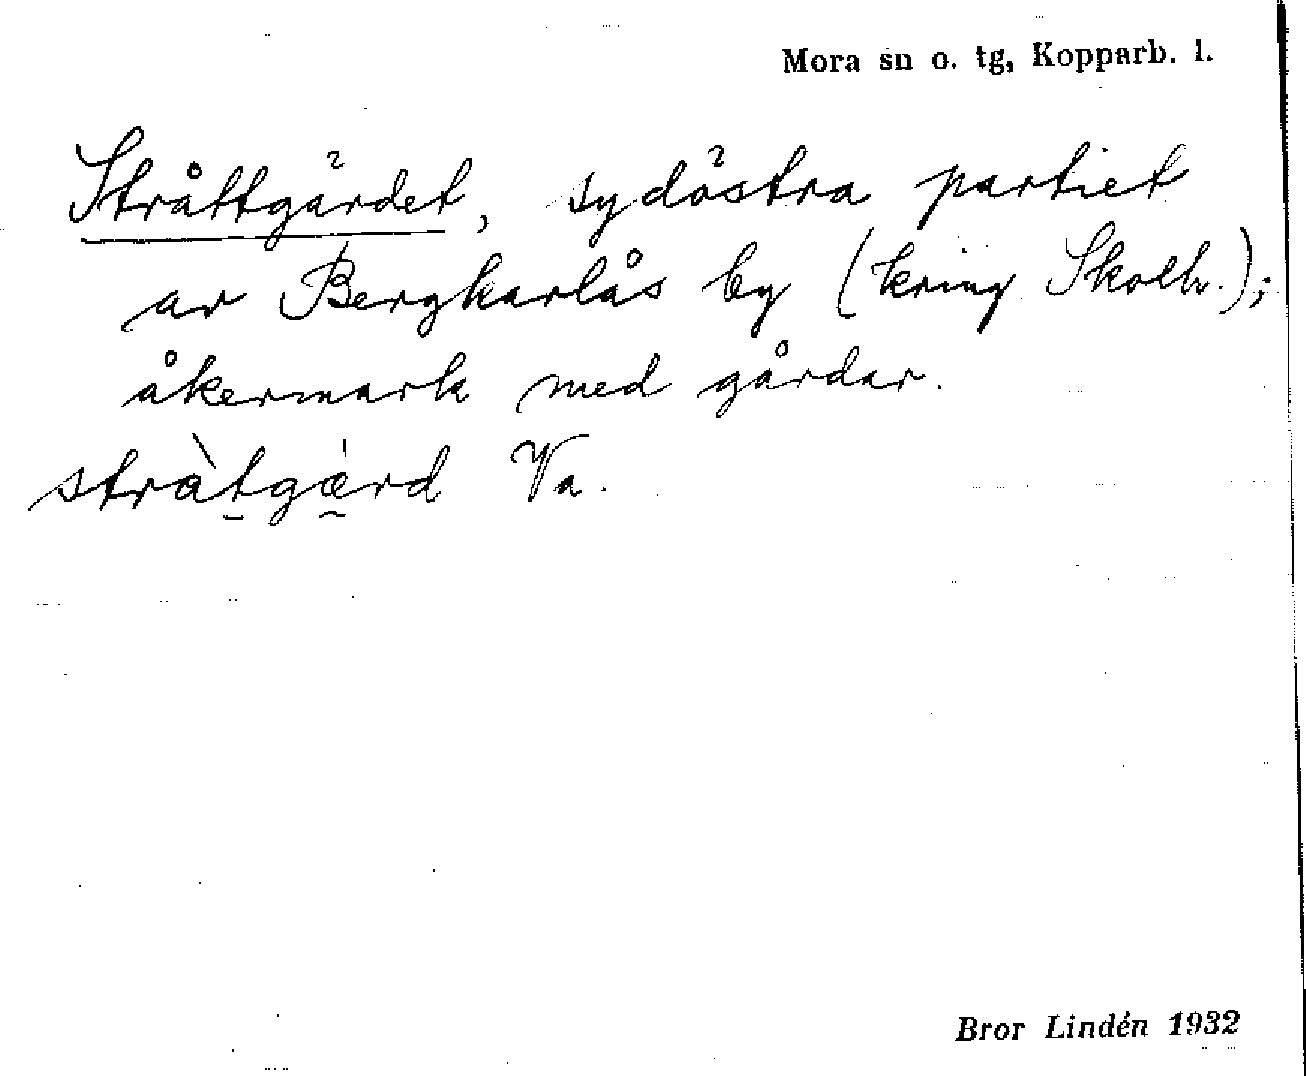 Mora sn o. tg, Kopparb. l.
Stråttgärdet, sydöstra partiet
av Bergkarlås by (kring Skolh.);
åkermark med gårdar.
stràtgærd Va.
Bror Lindén 1932